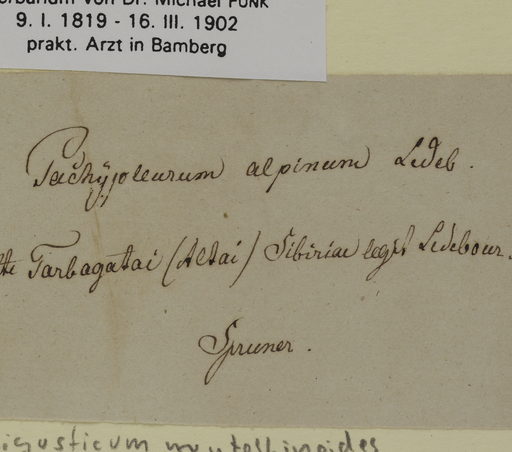 Herbarium von Dr. Michael FUNK
9. I. 1819 - 16. III. 1902
prakt. Arzt in Bamberg
Pachypleurum alpinum Ledeb.
Tarbagatai (Altai) Sibiriae legit Ledebour.
Spruner.